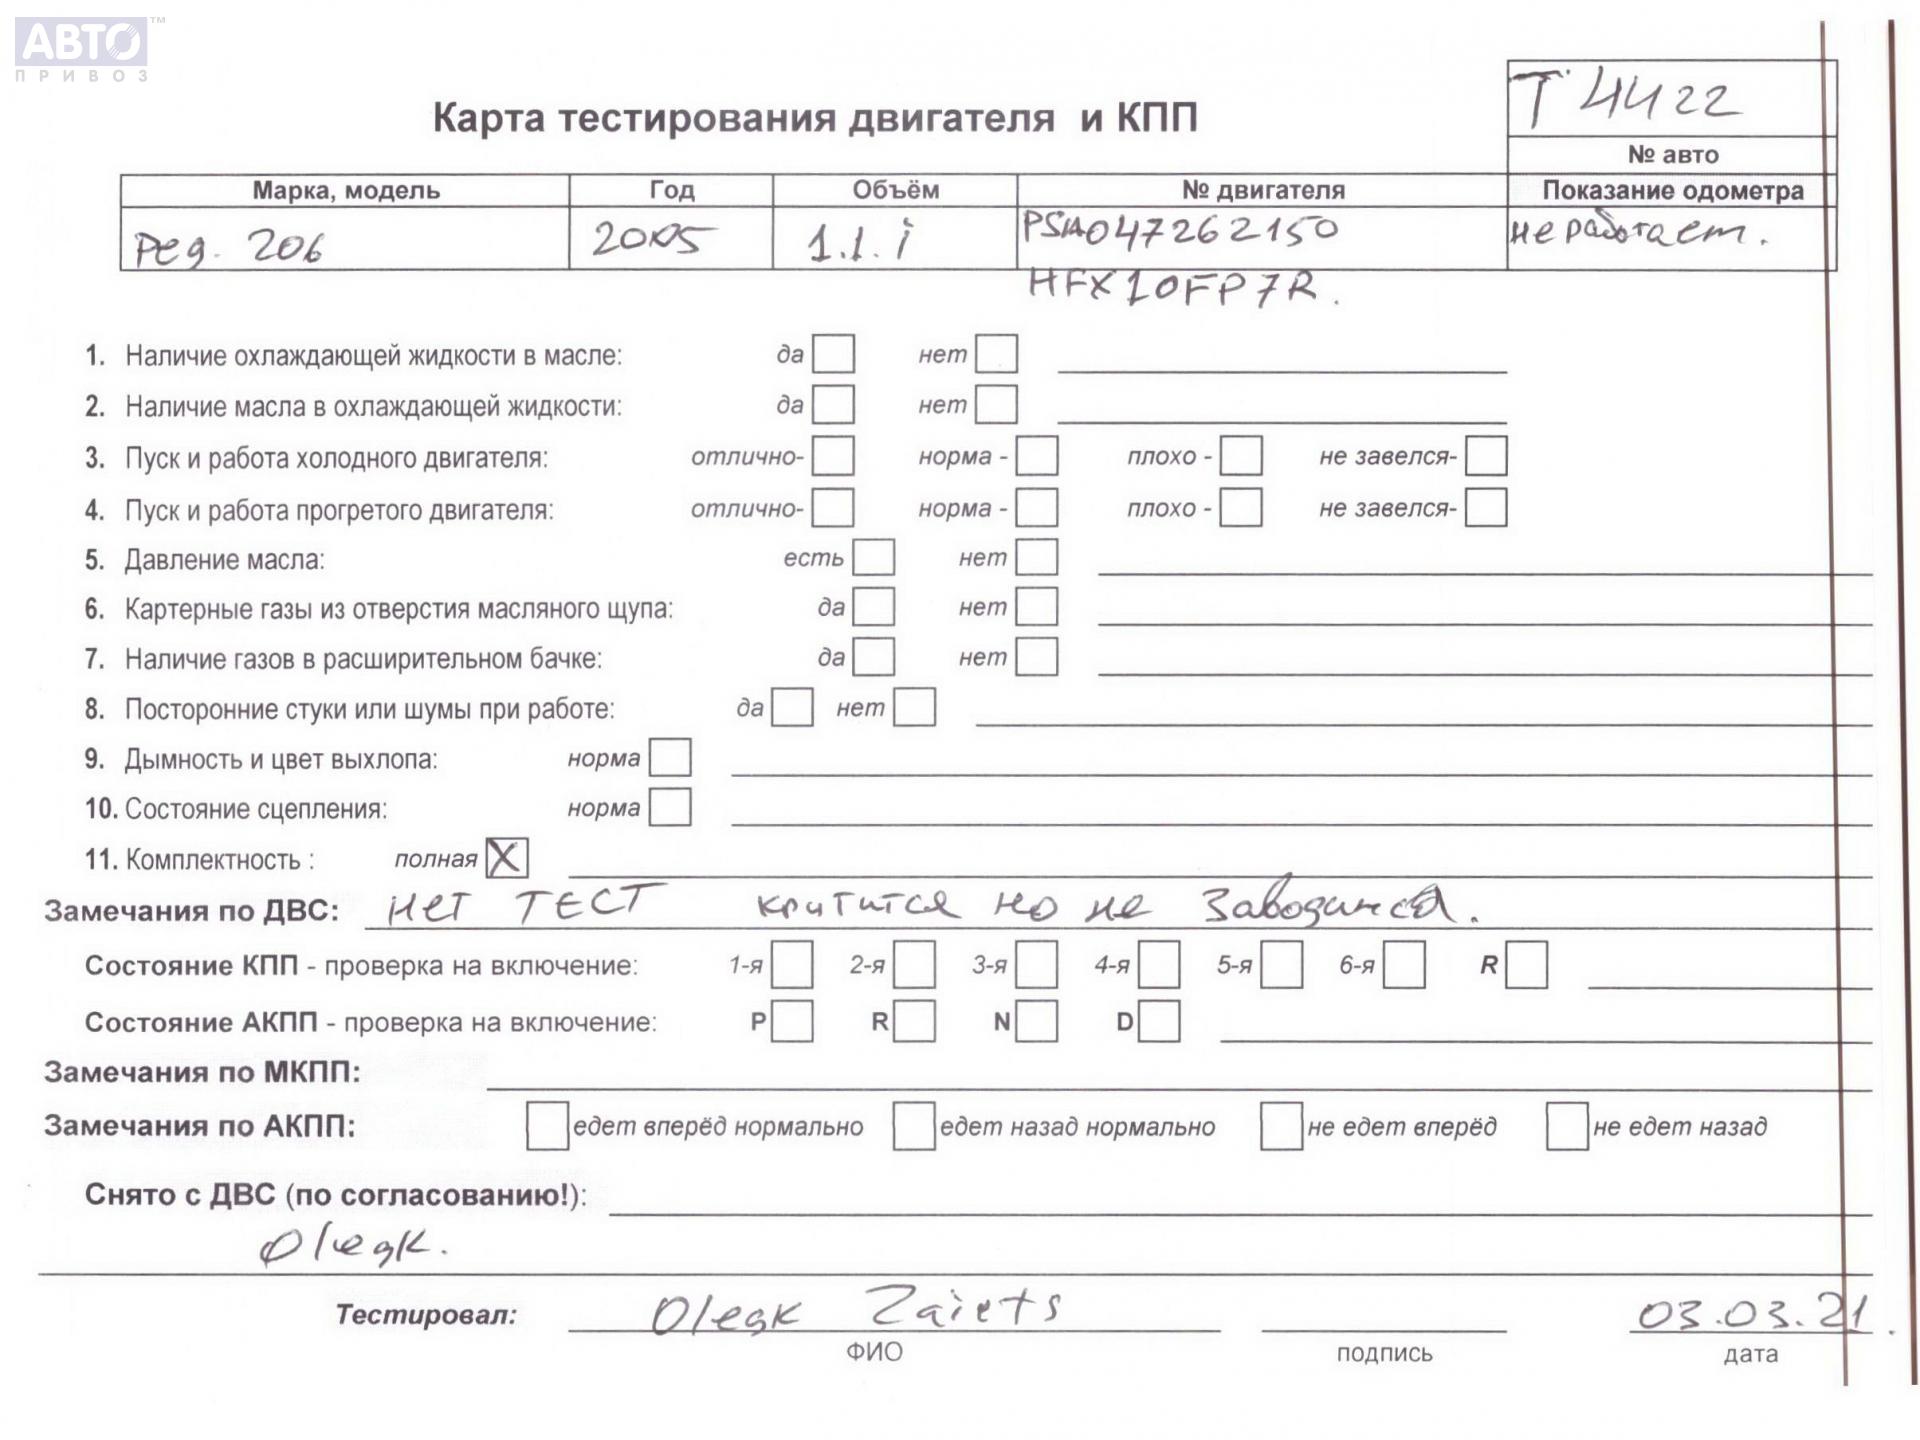 АВТО™
ПРИВОЗ
Т 4422
Карта тестирования двигателя и КПП
№ авто
Марка, модель Год Объём № двигателя Показание одометра
Peg. 206 2005 1.1. i PSA047262150 не работает.
HFX10FP7R.
1. Наличие охлаждающей жидкости в масле: да нет
2. Наличие масла в охлаждающей жидкости: да нет
3. Пуск и работа холодного двигателя: отлично- норма - плохо - не завелся-
4. Пуск и работа прогретого двигателя: отлично- норма - плохо - не завелся-
5. Давление масла: есть нет
6. Картерные газы из отверстия масляного щупа: да нет
7. Наличие газов в расширительном бачке: да нет
8. Посторонние стуки или шумы при работе: да нет
9. Дымность и цвет выхлопа: норма
10. Состояние сцепления: норма
11. Комплектность : полная X
Замечания по ДВС: нет ТЕСТ критится но не
Состояние КПП - проверка на включение: 1-я 2-я 3-я 4-я 5-я 6-я R
Состояние АКПП - проверка на включение: P R N D
Замечания по МКПП:
Замечания по АКПП: едет вперёд нормально едет назад нормально не едет вперёд не едет назад
Снято с ДВС (по согласованию!):
Olegk.
Тестировал: Olegk Zaiets 03.03.21.
ФИО подпись дата